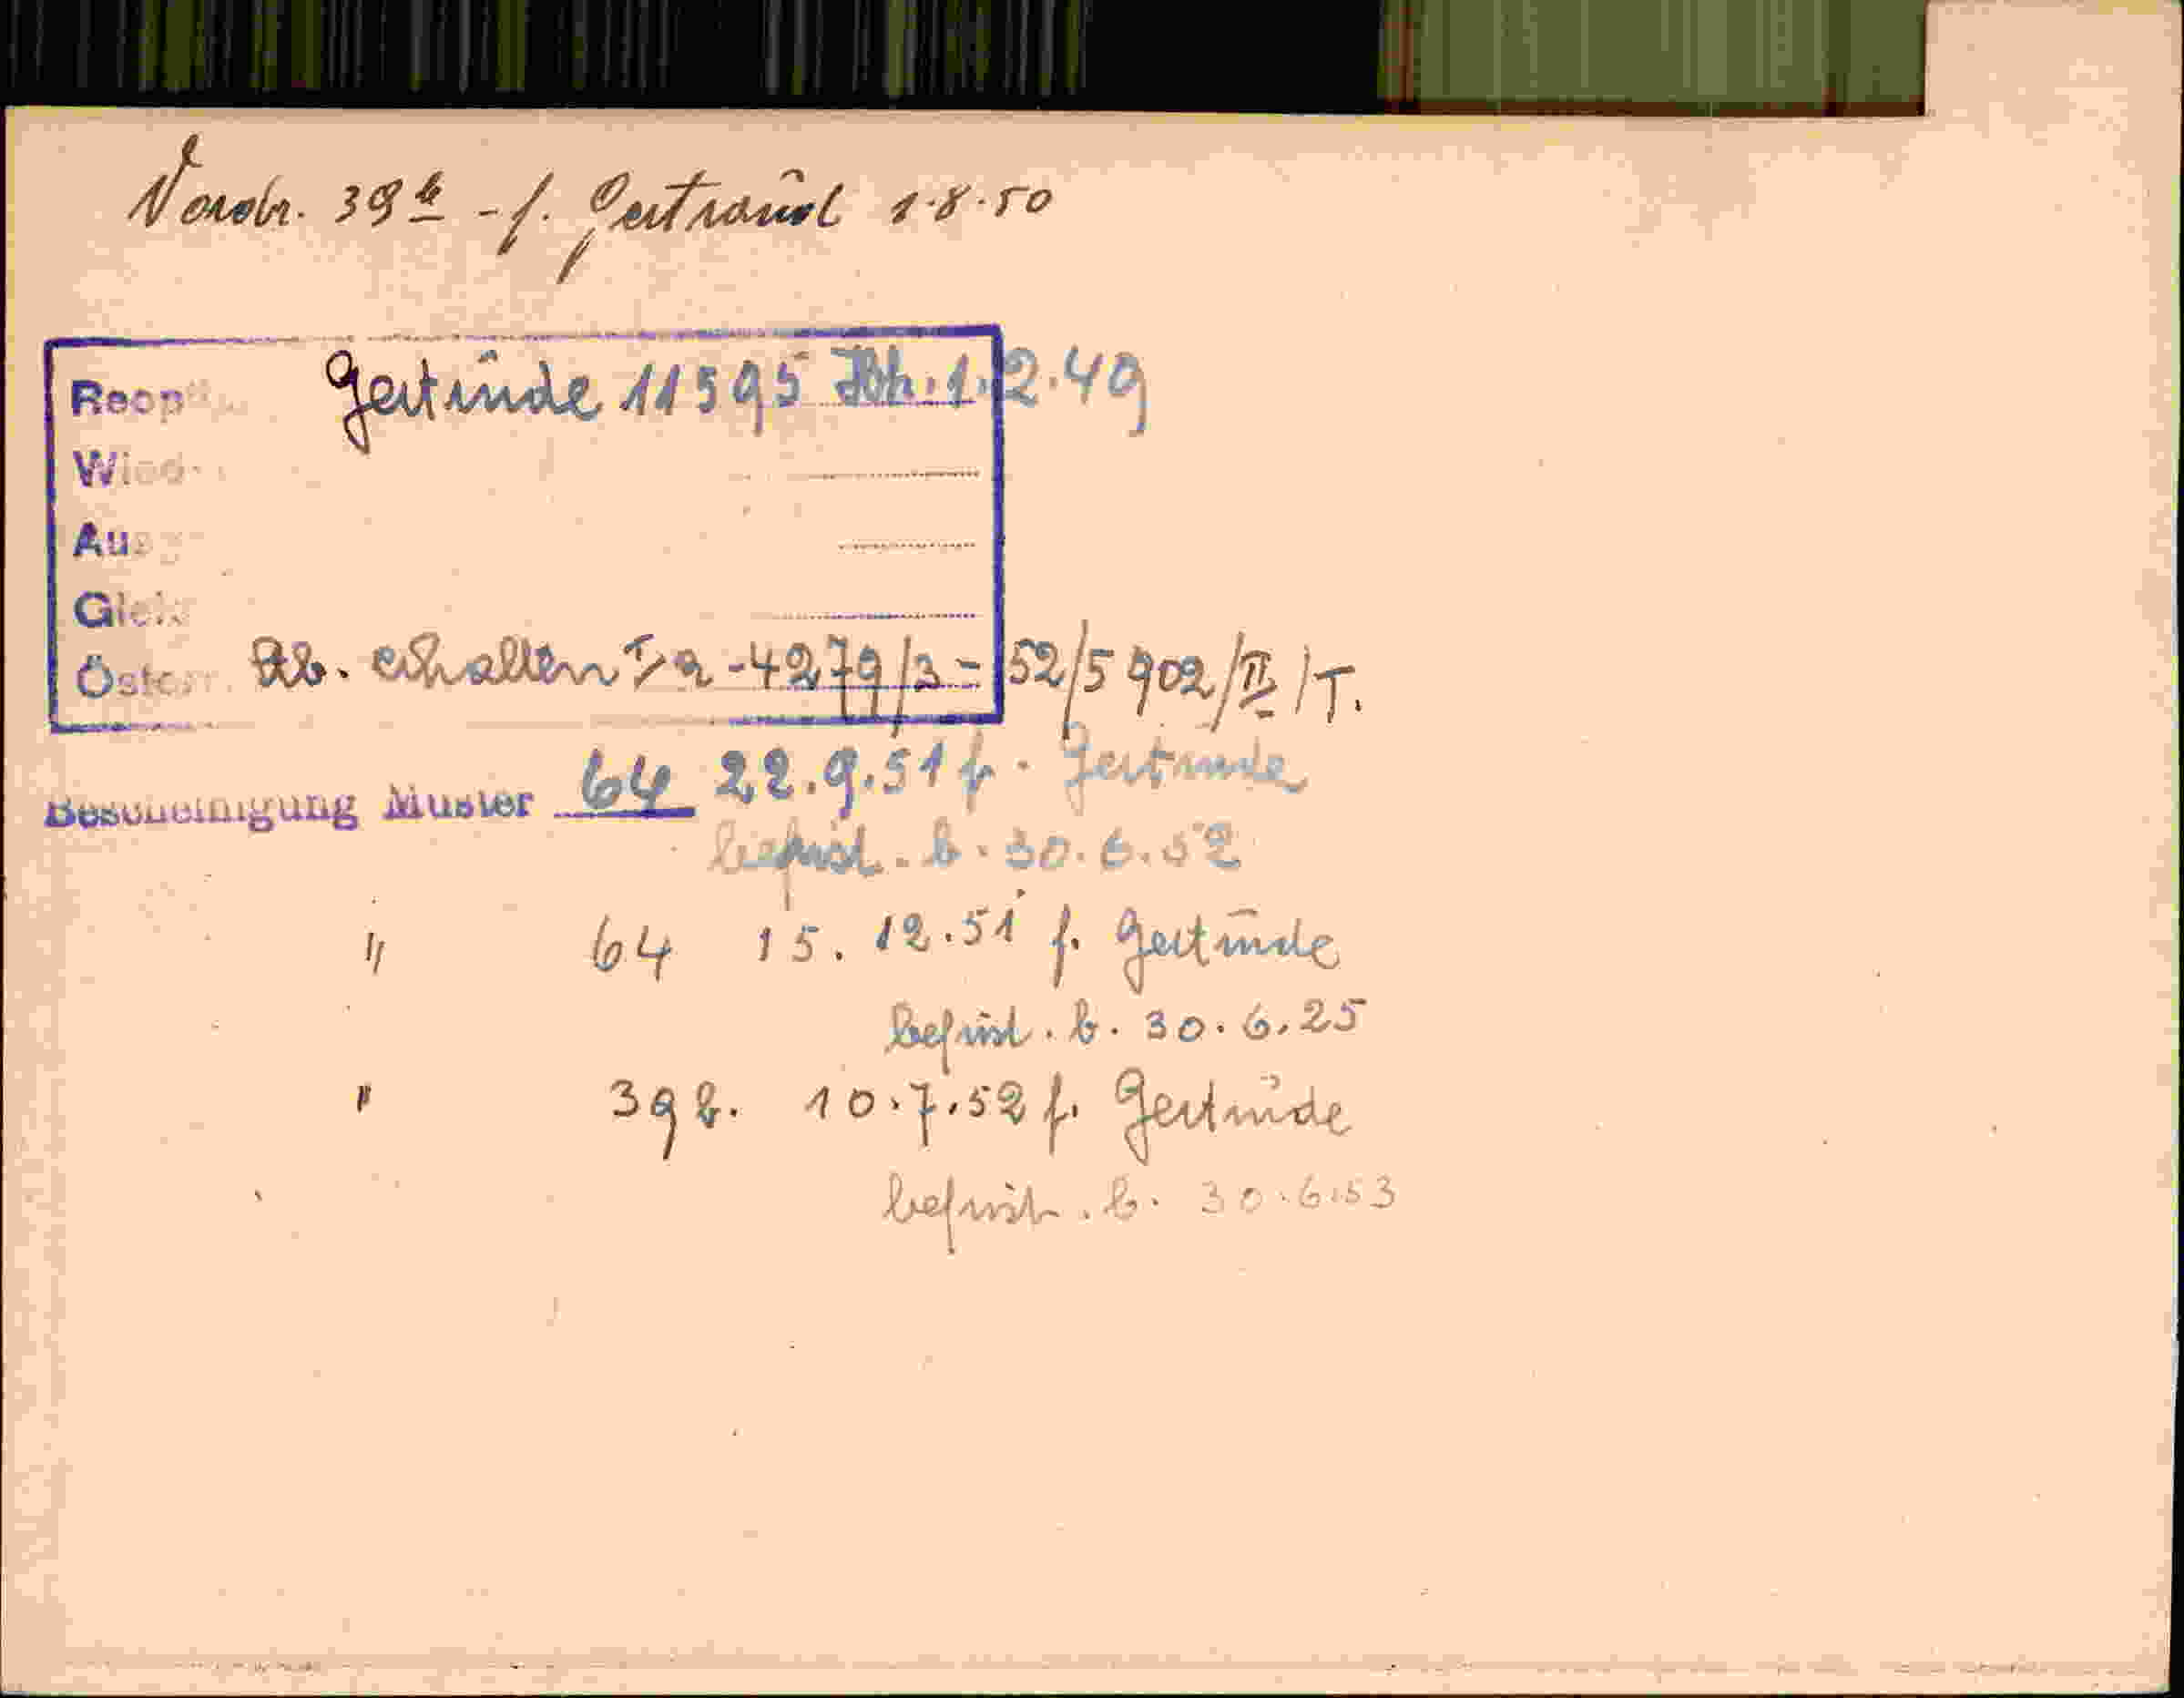 Vordr. 39b - f. Gertraud 1.8.50
Gertrude 11595 1.2.49
Stb. erhalten I/a - 4279/3 = 52/5902/II/T.
Bescheinigung Muster 64 22.9.51 f. Gertrude
befrist. b. 30.6.52
" 64 15.12.51 f. Gertrude
befrist. b. 30.6.25
" 39b. 10.7.52 f. Gertrude
befrist. b. 30.6.53